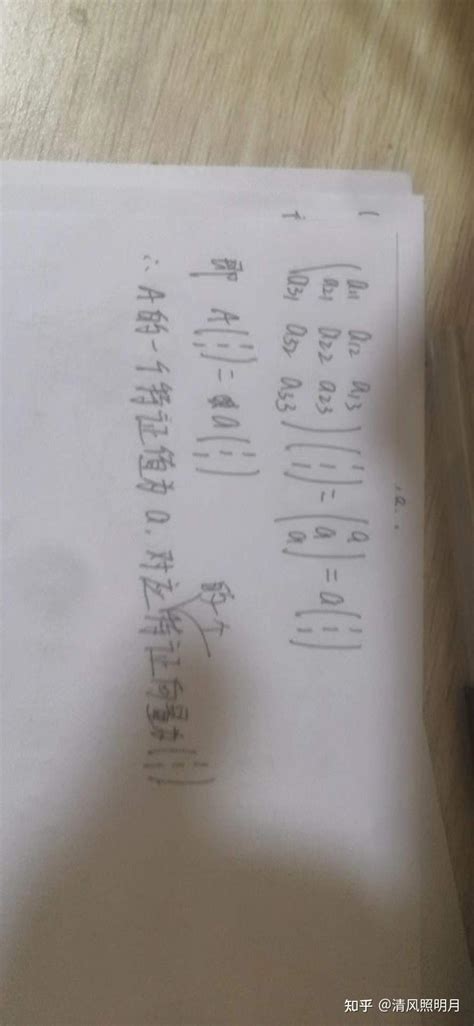 (a₁₁ a₁₂ a₁₃
a₂₁ a₂₂ a₂₃
a₃₁ a₃₂ a₃₃) (1 1 1) = (a a a) = a (1 1 1)
即 A(1 1 1) = a(1 1 1)
∴ A的一个特征值为 a. 对应的一个特征向量为(1 1 1)
知乎 @清风照明月